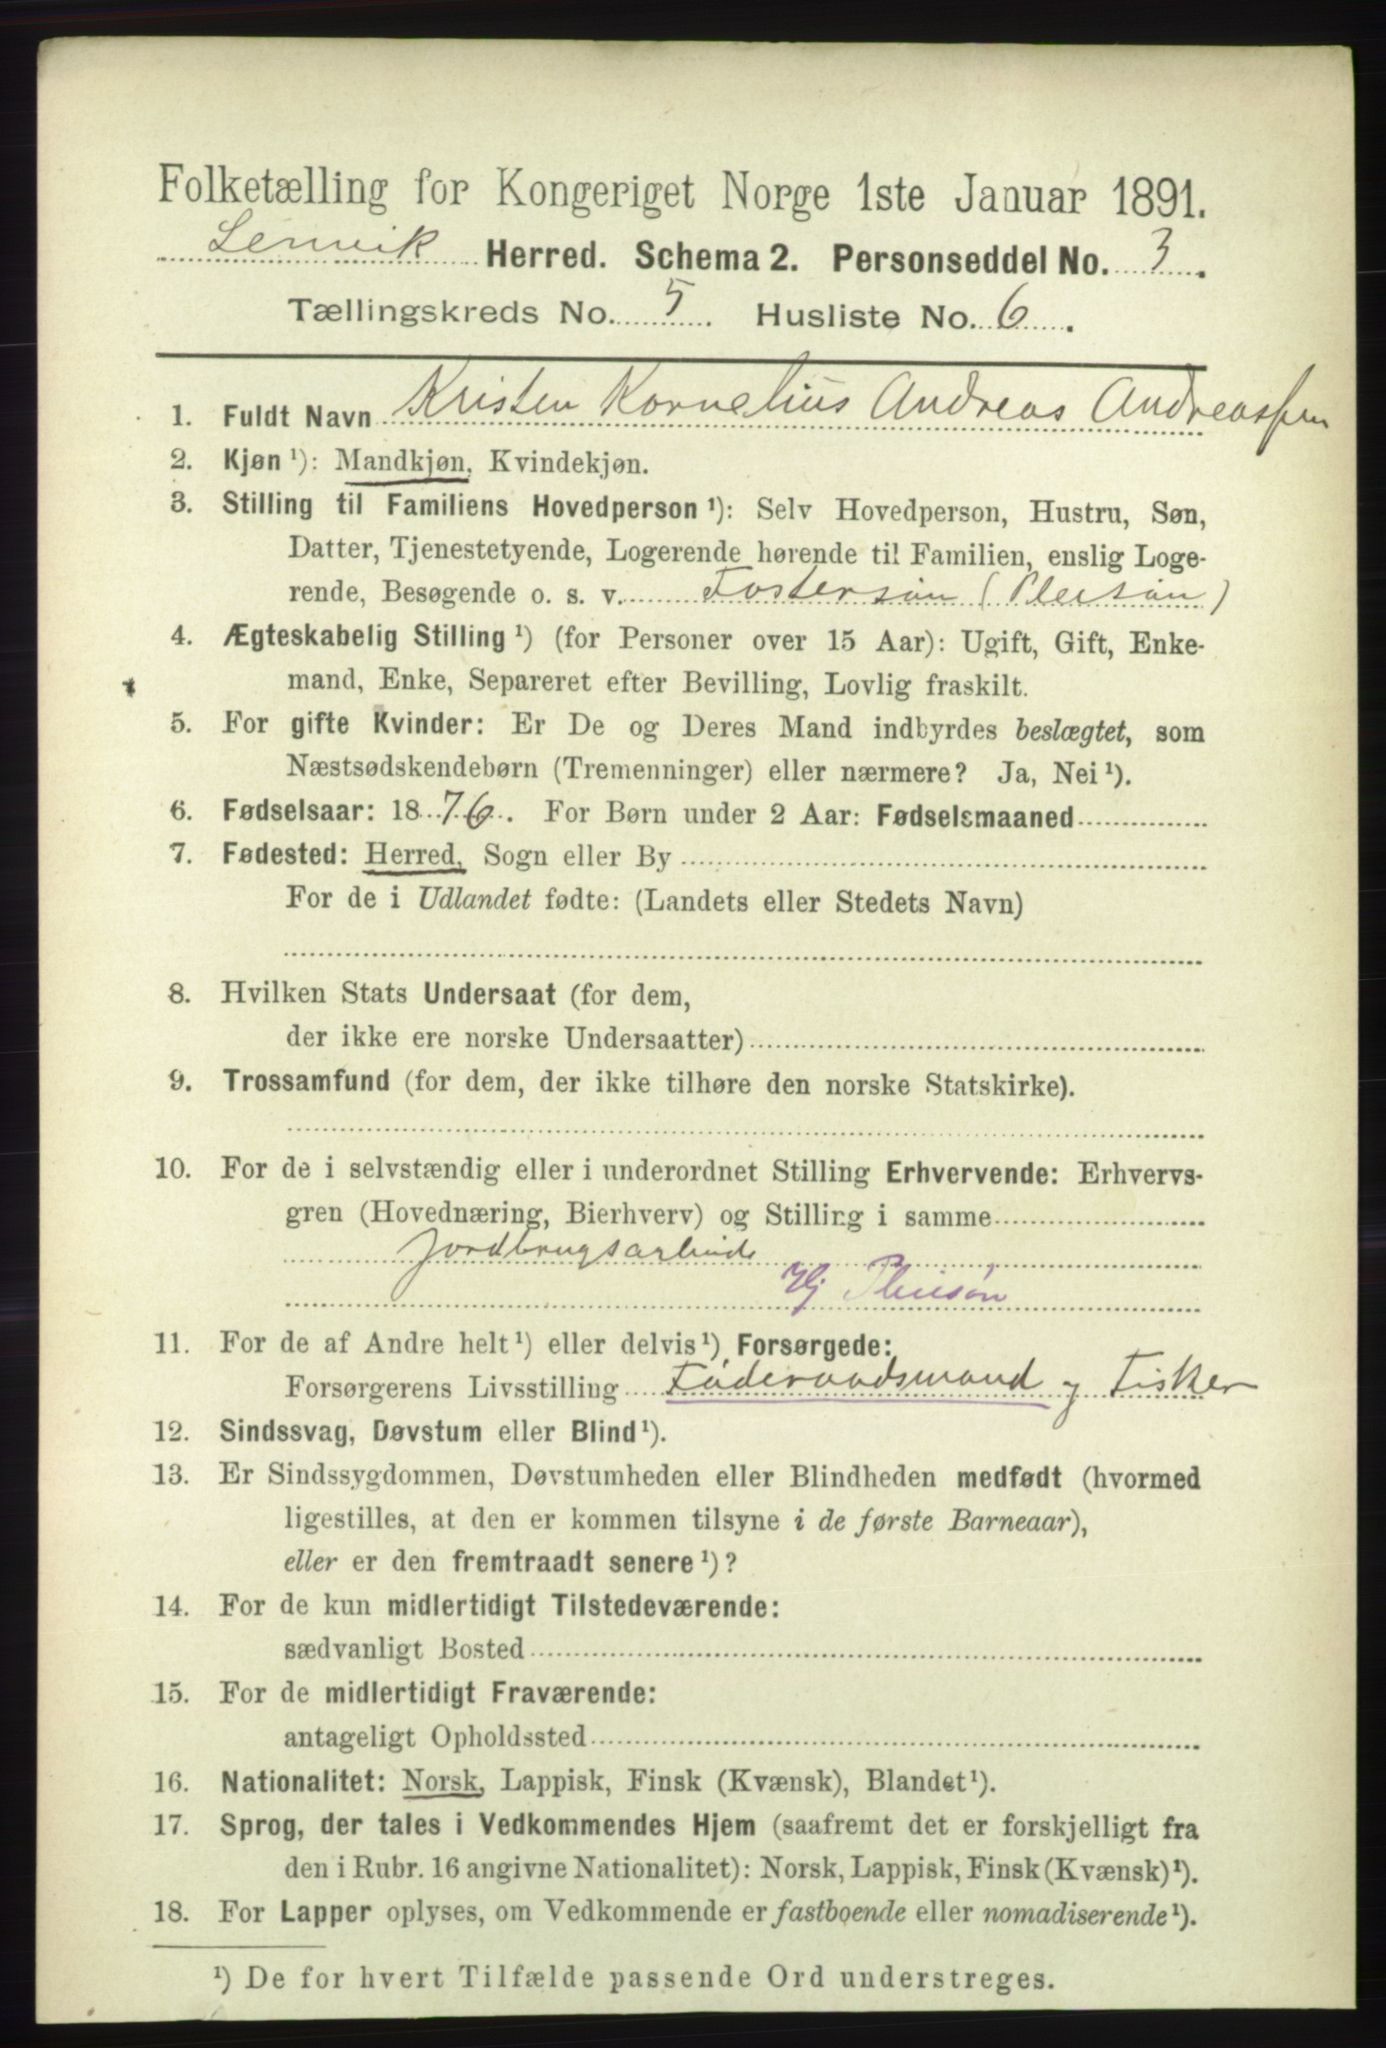 Folketælling for Kongeriget Norge 1ste Januar 1891.
Lenvik Herred. Schema 2. Personseddel No. 3.
Tællingskreds No. 5. Husliste No. 6.
1. Fuldt Navn Kristen Kornelius Andreas Andreassen
2. Kjøn ¹): Mandkjøn, Kvindekjøn.
3. Stilling til Familiens Hovedperson ¹): Selv Hovedperson, Hustru, Søn,
Datter, Tjenestetyende, Logerende hørende til Familien, enslig Loge-
rende, Besøgende o. s. v. Fostersøn (Pleisøn)
4. Ægteskabelig Stilling ¹) (for Personer over 15 Aar): Ugift, Gift, Enke-
mand, Enke, Separeret efter Bevilling, Lovlig fraskilt.
5. For gifte Kvinder: Er De og Deres Mand indbyrdes beslægtet, som
Næstsødskendebørn (Tremenninger) eller nærmere? Ja, Nei ¹).
6. Fødselsaar: 1876. For Børn under 2 Aar: Fødselsmaaned
7. Fødested: Herred, Sogn eller By
For de i Udlandet fødte: (Landets eller Stedets Navn)
8. Hvilken Stats Undersaat (for dem,
der ikke ere norske Undersaatter)
9. Trossamfund (for dem, der ikke tilhøre den norske Statskirke).
10. For de i selvstændig eller i underordnet Stilling Erhvervende: Erhvervs-
gren (Hovednæring, Bierhverv) og Stilling i samme
Jordbrugsarbeide
Hj Pleisøn
11. For de af Andre helt ¹) eller delvis ¹) Forsørgede:
Forsørgerens Livsstilling Føderaadsmand og Fisker
12. Sindssvag, Døvstum eller Blind ¹).
13. Er Sindssygdommen, Døvstumheden eller Blindheden medfødt (hvormed
ligestilles, at den er kommen tilsyne i de første Barneaar),
eller er den fremtraadt senere ¹)?
14. For de kun midlertidigt Tilstedeværende:
sædvanligt Bosted
15. For de midlertidigt Fraværende:
antageligt Opholdssted
16. Nationalitet: Norsk, Lappisk, Finsk (Kvænsk), Blandet ¹).
17. Sprog, der tales i Vedkommendes Hjem (saafremt det er forskjelligt fra
den i Rubr. 16 angivne Nationalitet): Norsk, Lappisk, Finsk (Kvænsk) ¹).
18. For Lapper oplyses, om Vedkommende er fastboende eller nomadiserende ¹).
¹) De for hvert Tilfælde passende Ord understreges.